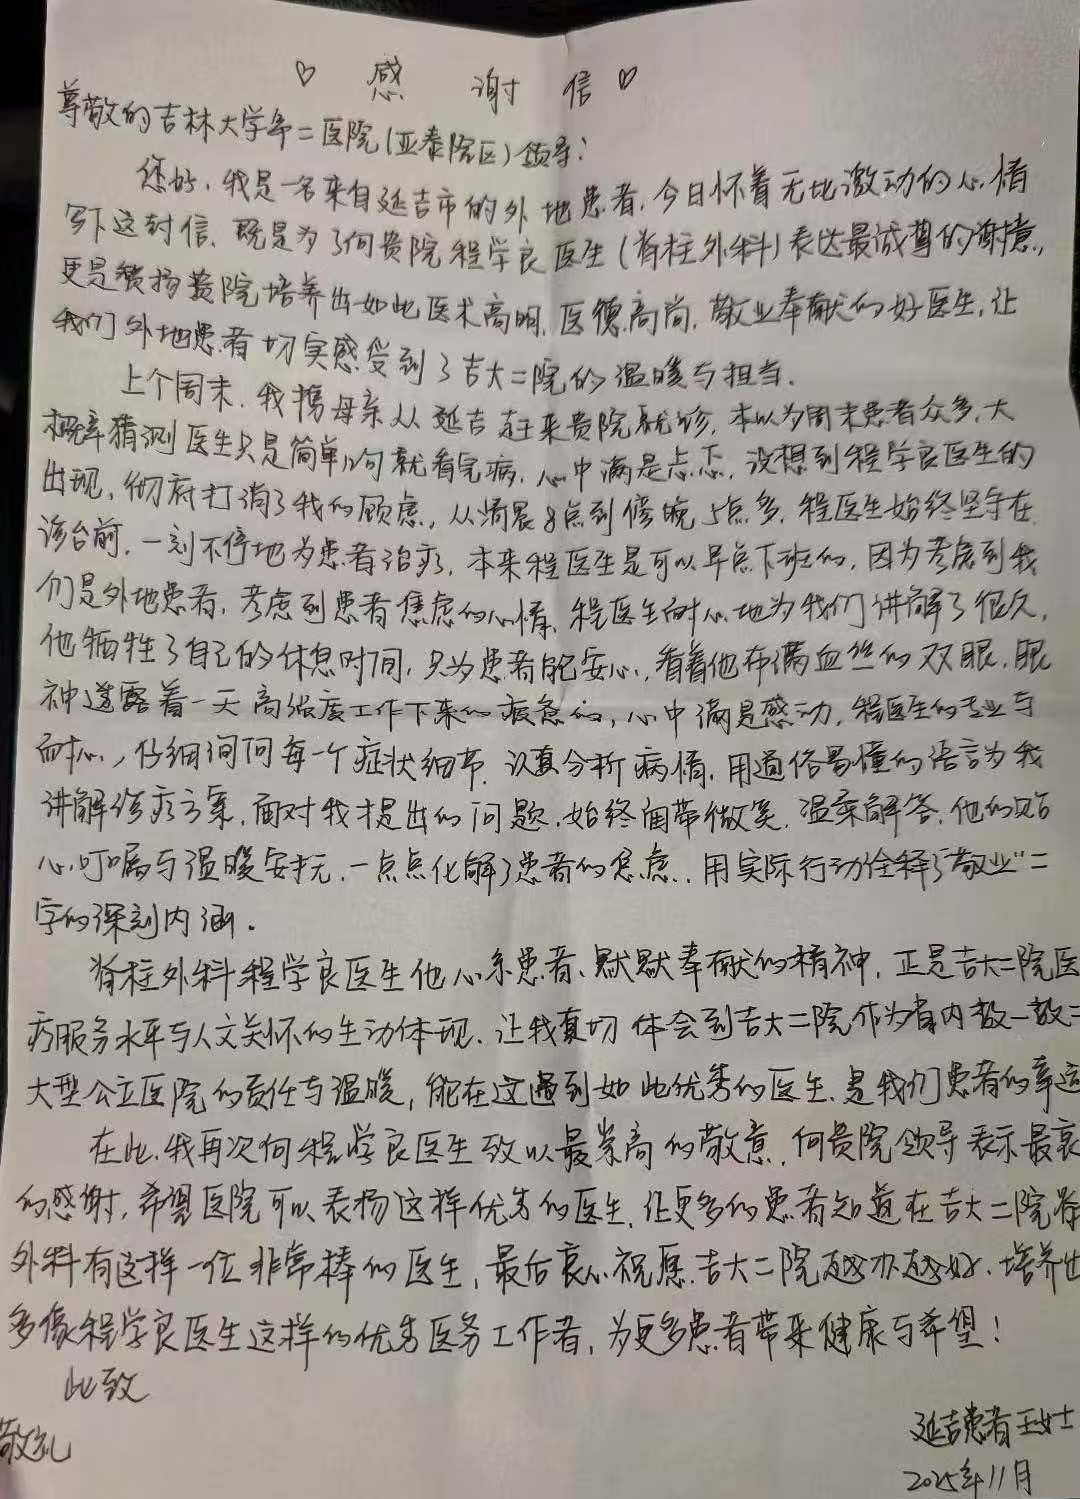 ♡ 感 谢 信 ♡
尊敬的吉林大学第二医院(亚泰院区)领导:
您好,我是一名来自延吉市的外地患者,今日怀着无比激动的心情
写下这封信,既是为了向贵院程学良医生(脊柱外科)表达最诚挚的谢意,
更是赞扬贵院培养出如此医术高明,医德高尚,敬业奉献的好医生,让
我们外地患者切实感受到了吉大二院的温暖与担当.
上个周末,我携母亲从延吉赶来贵院就诊,本以为周末患者众多,大
概率猜测医生只是简单几句就看完病,心中满是忐忑,没想到程学良医生的
出现,彻底打消了我的顾虑,从清晨8点到傍晚5点多,程医生始终坚守在
诊台前,一刻不停地为患者治疗,本来程医生是可以早点下班的,因为考虑到我
们是外地患者,考虑到患者焦虑的心情,程医生耐心地为我们讲解了很久,
他牺牲了自己的休息时间,只为患者能安心,看着他布满血丝的双眼,眼
神透露着一天高强度工作下来的疲惫的,心中满是感动,程医生的专业与
耐心,仔细询问每一个症状细节,认真分析病情,用通俗易懂的语言为我
讲解治疗方案,面对我提出的问题,始终面带微笑,温柔解答,他的贴
心叮嘱与温暖安抚,一点点化解了患者的焦虑,用实际行动诠释了"敬业"二
字的深刻内涵.
脊柱外科程学良医生他心系患者、默默奉献的精神,正是吉大二院医
疗服务水平与人文关怀的生动体现,让我真切体会到吉大二院作为省内数一数二
大型公立医院的责任与温暖,能在这遇到如此优秀的医生,是我们患者的幸运
在此,我再次向程学良医生致以最崇高的敬意,向贵院领导表示最衷
的感谢,希望医院可以表扬这样优秀的医生,让更多的患者知道在吉大二院脊
外科有这样一位非常棒的医生,最后衷心祝愿,吉大二院越办越好,培养出
多像程学良医生这样的优秀医务工作者,为更多患者带来健康与希望!
此致
敬礼
延吉患者王女士
2025年11月